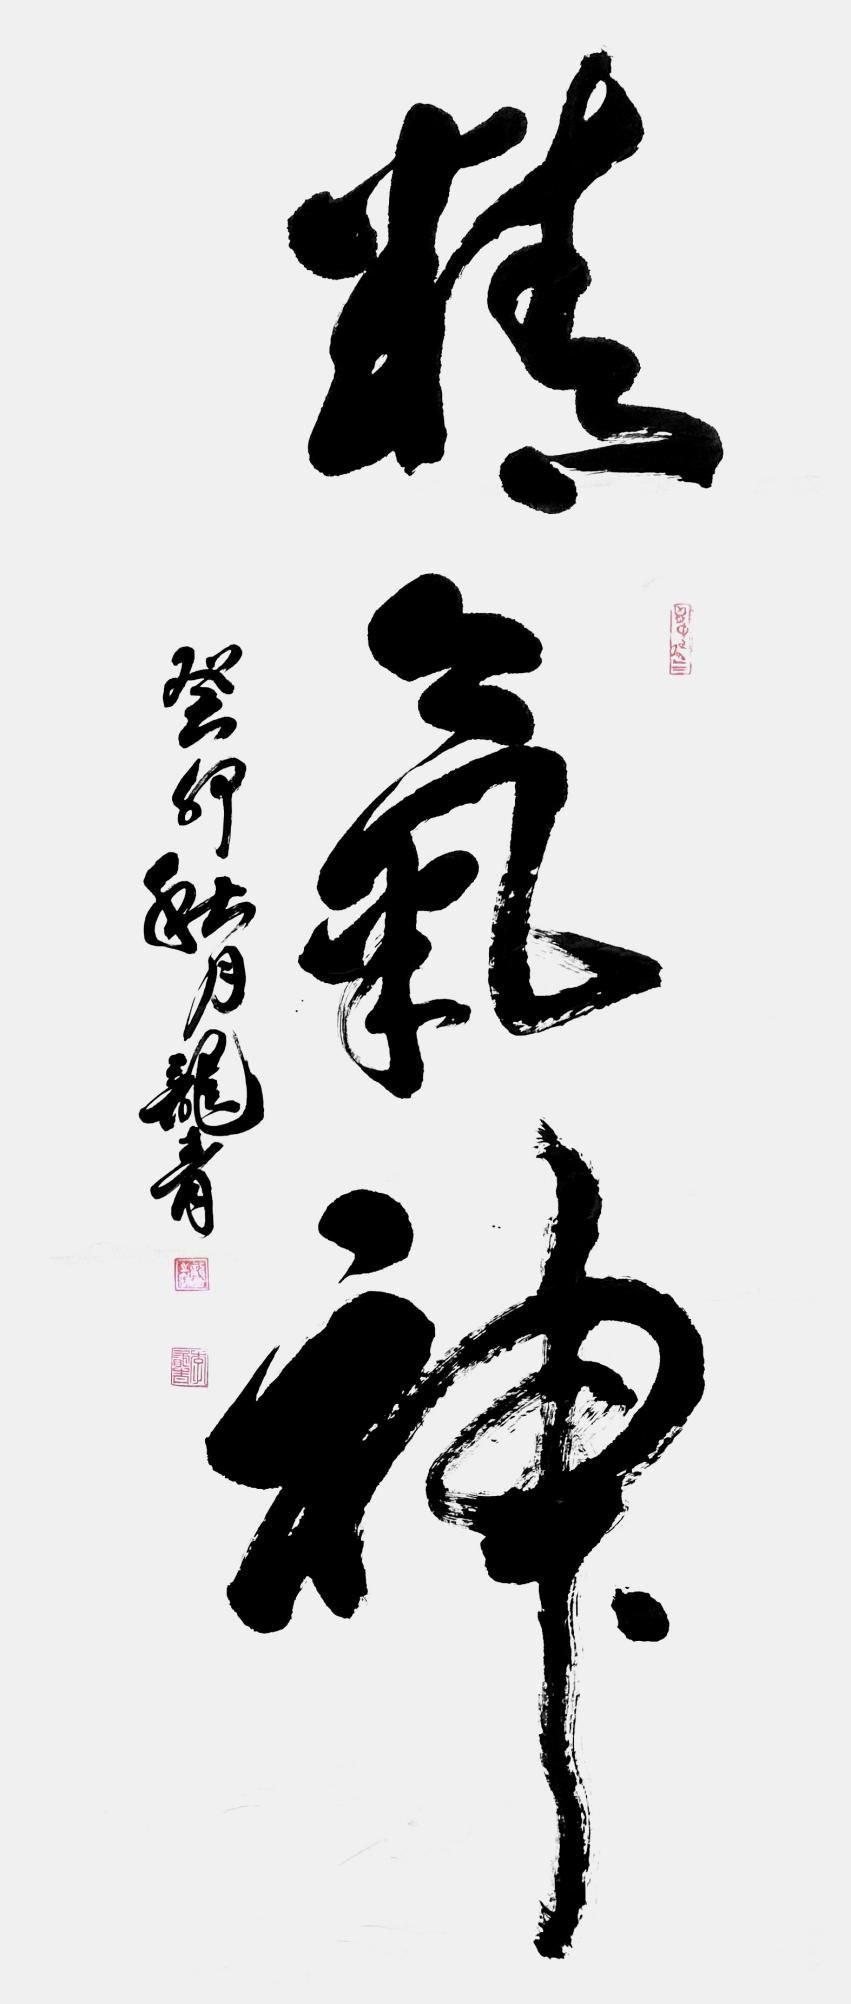 精氣神
癸卯秋月龍青